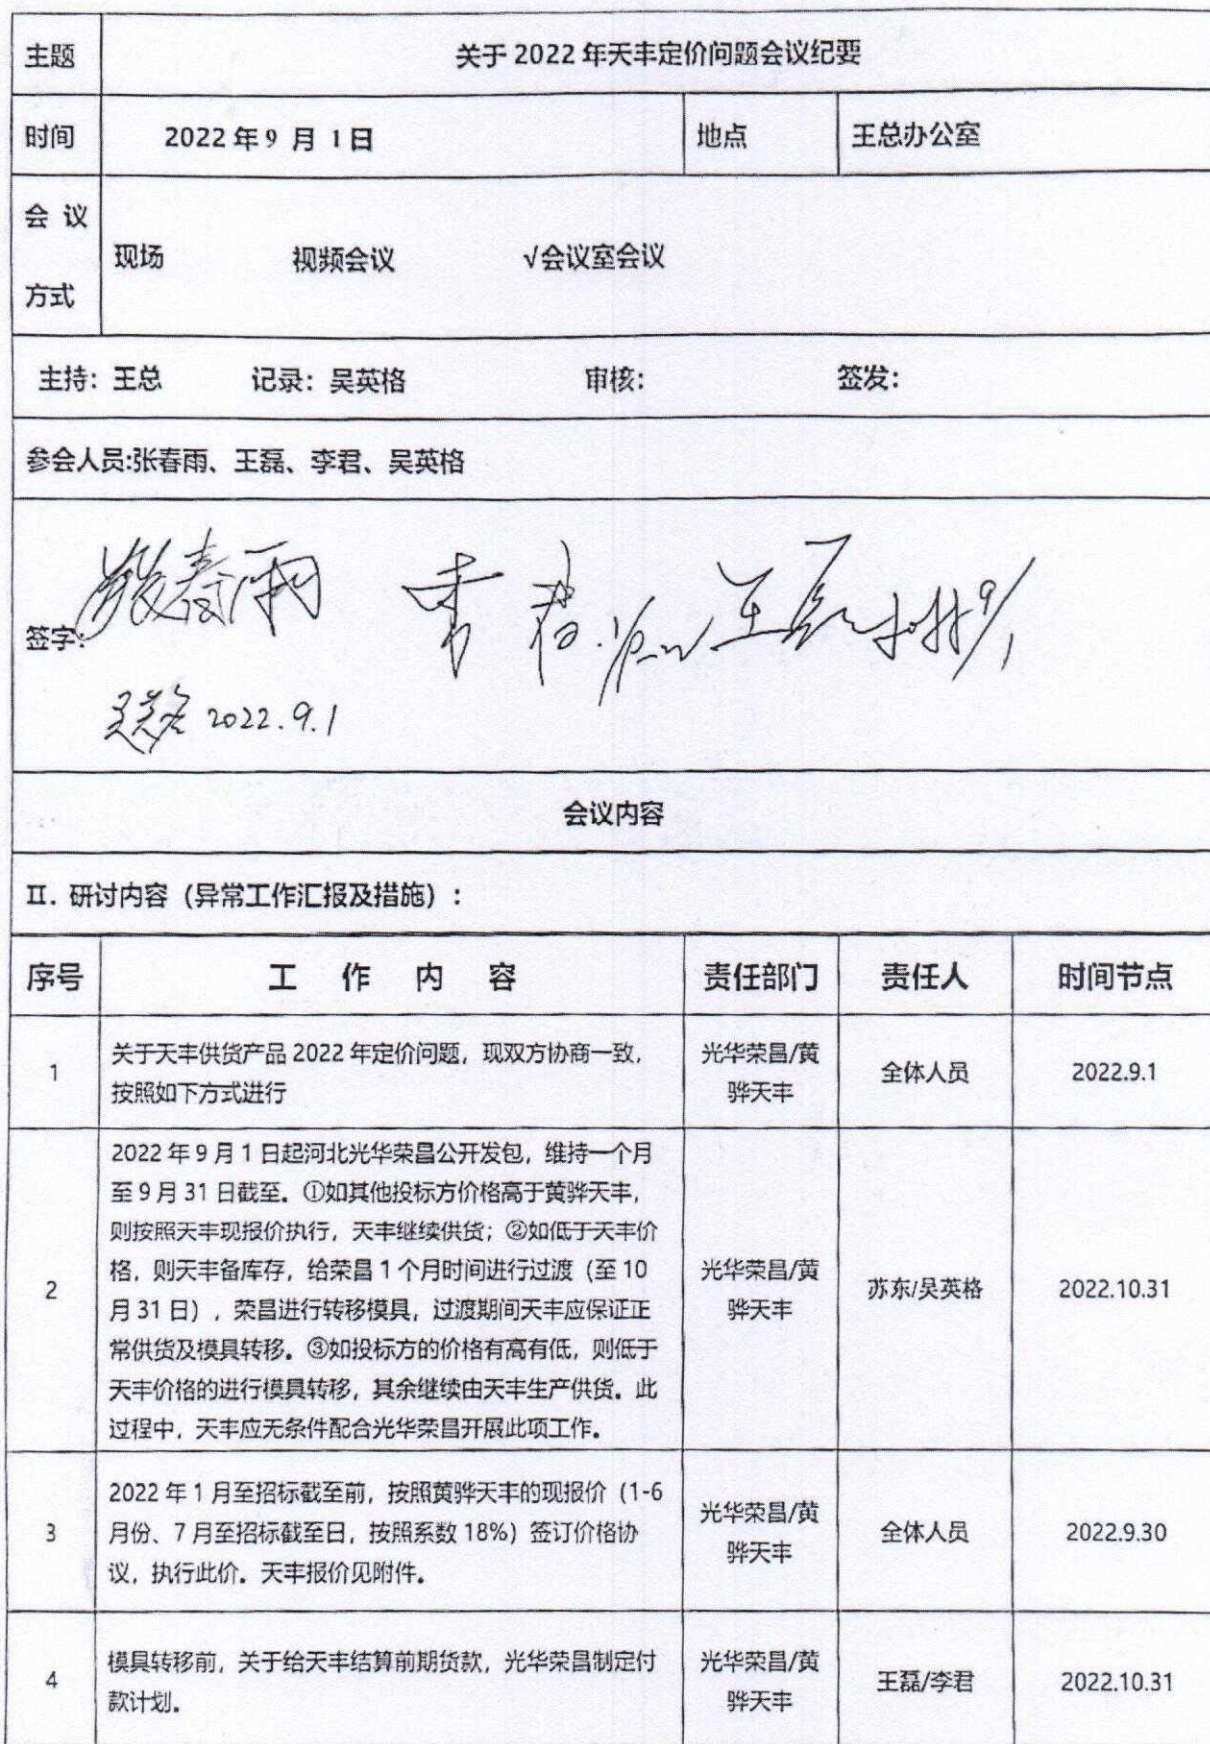 主题
关于 2022 年天丰定价问题会议纪要
时间
2022 年 9 月 1日
地点
王总办公室
会 议
方式
现场 视频会议 √会议室会议
主持：王总 记录：吴英格 审核： 签发：
参会人员:张春雨、王磊、李君、吴英格
签字：
张春雨 李君 王磊
吴英格 2022.9.1
会议内容
Ⅱ. 研讨内容（异常工作汇报及措施）:
序号 工 作 内 容 责任部门 责任人 时间节点
1
关于天丰供货产品 2022 年定价问题，现双方协商一致，
按照如下方式进行
光华荣昌/黄
骅天丰
全体人员
2022.9.1
2
2022 年 9 月 1 日起河北光华荣昌公开发包，维持一个月
至 9 月 31 日截至。①如其他投标方价格高于黄骅天丰，
则按照天丰现报价执行，天丰继续供货；②如低于天丰价
格，则天丰备库存，给荣昌 1 个月时间进行过渡（至 10
月 31 日），荣昌进行转移模具，过渡期间天丰应保证正
常供货及模具转移。③如投标方的价格有高有低，则低于
天丰价格的进行模具转移，其余继续由天丰生产供货。此
过程中，天丰应无条件配合光华荣昌开展此项工作。
光华荣昌/黄
骅天丰
苏东/吴英格
2022.10.31
3
2022 年 1 月至招标截至前，按照黄骅天丰的现报价（1-6
月份、7 月至招标截至日，按照系数 18%）签订价格协
议，执行此价。天丰报价见附件。
光华荣昌/黄
骅天丰
全体人员
2022.9.30
4
模具转移前，关于给天丰结算前期货款，光华荣昌制定付
款计划。
光华荣昌/黄
骅天丰
王磊/李君
2022.10.31